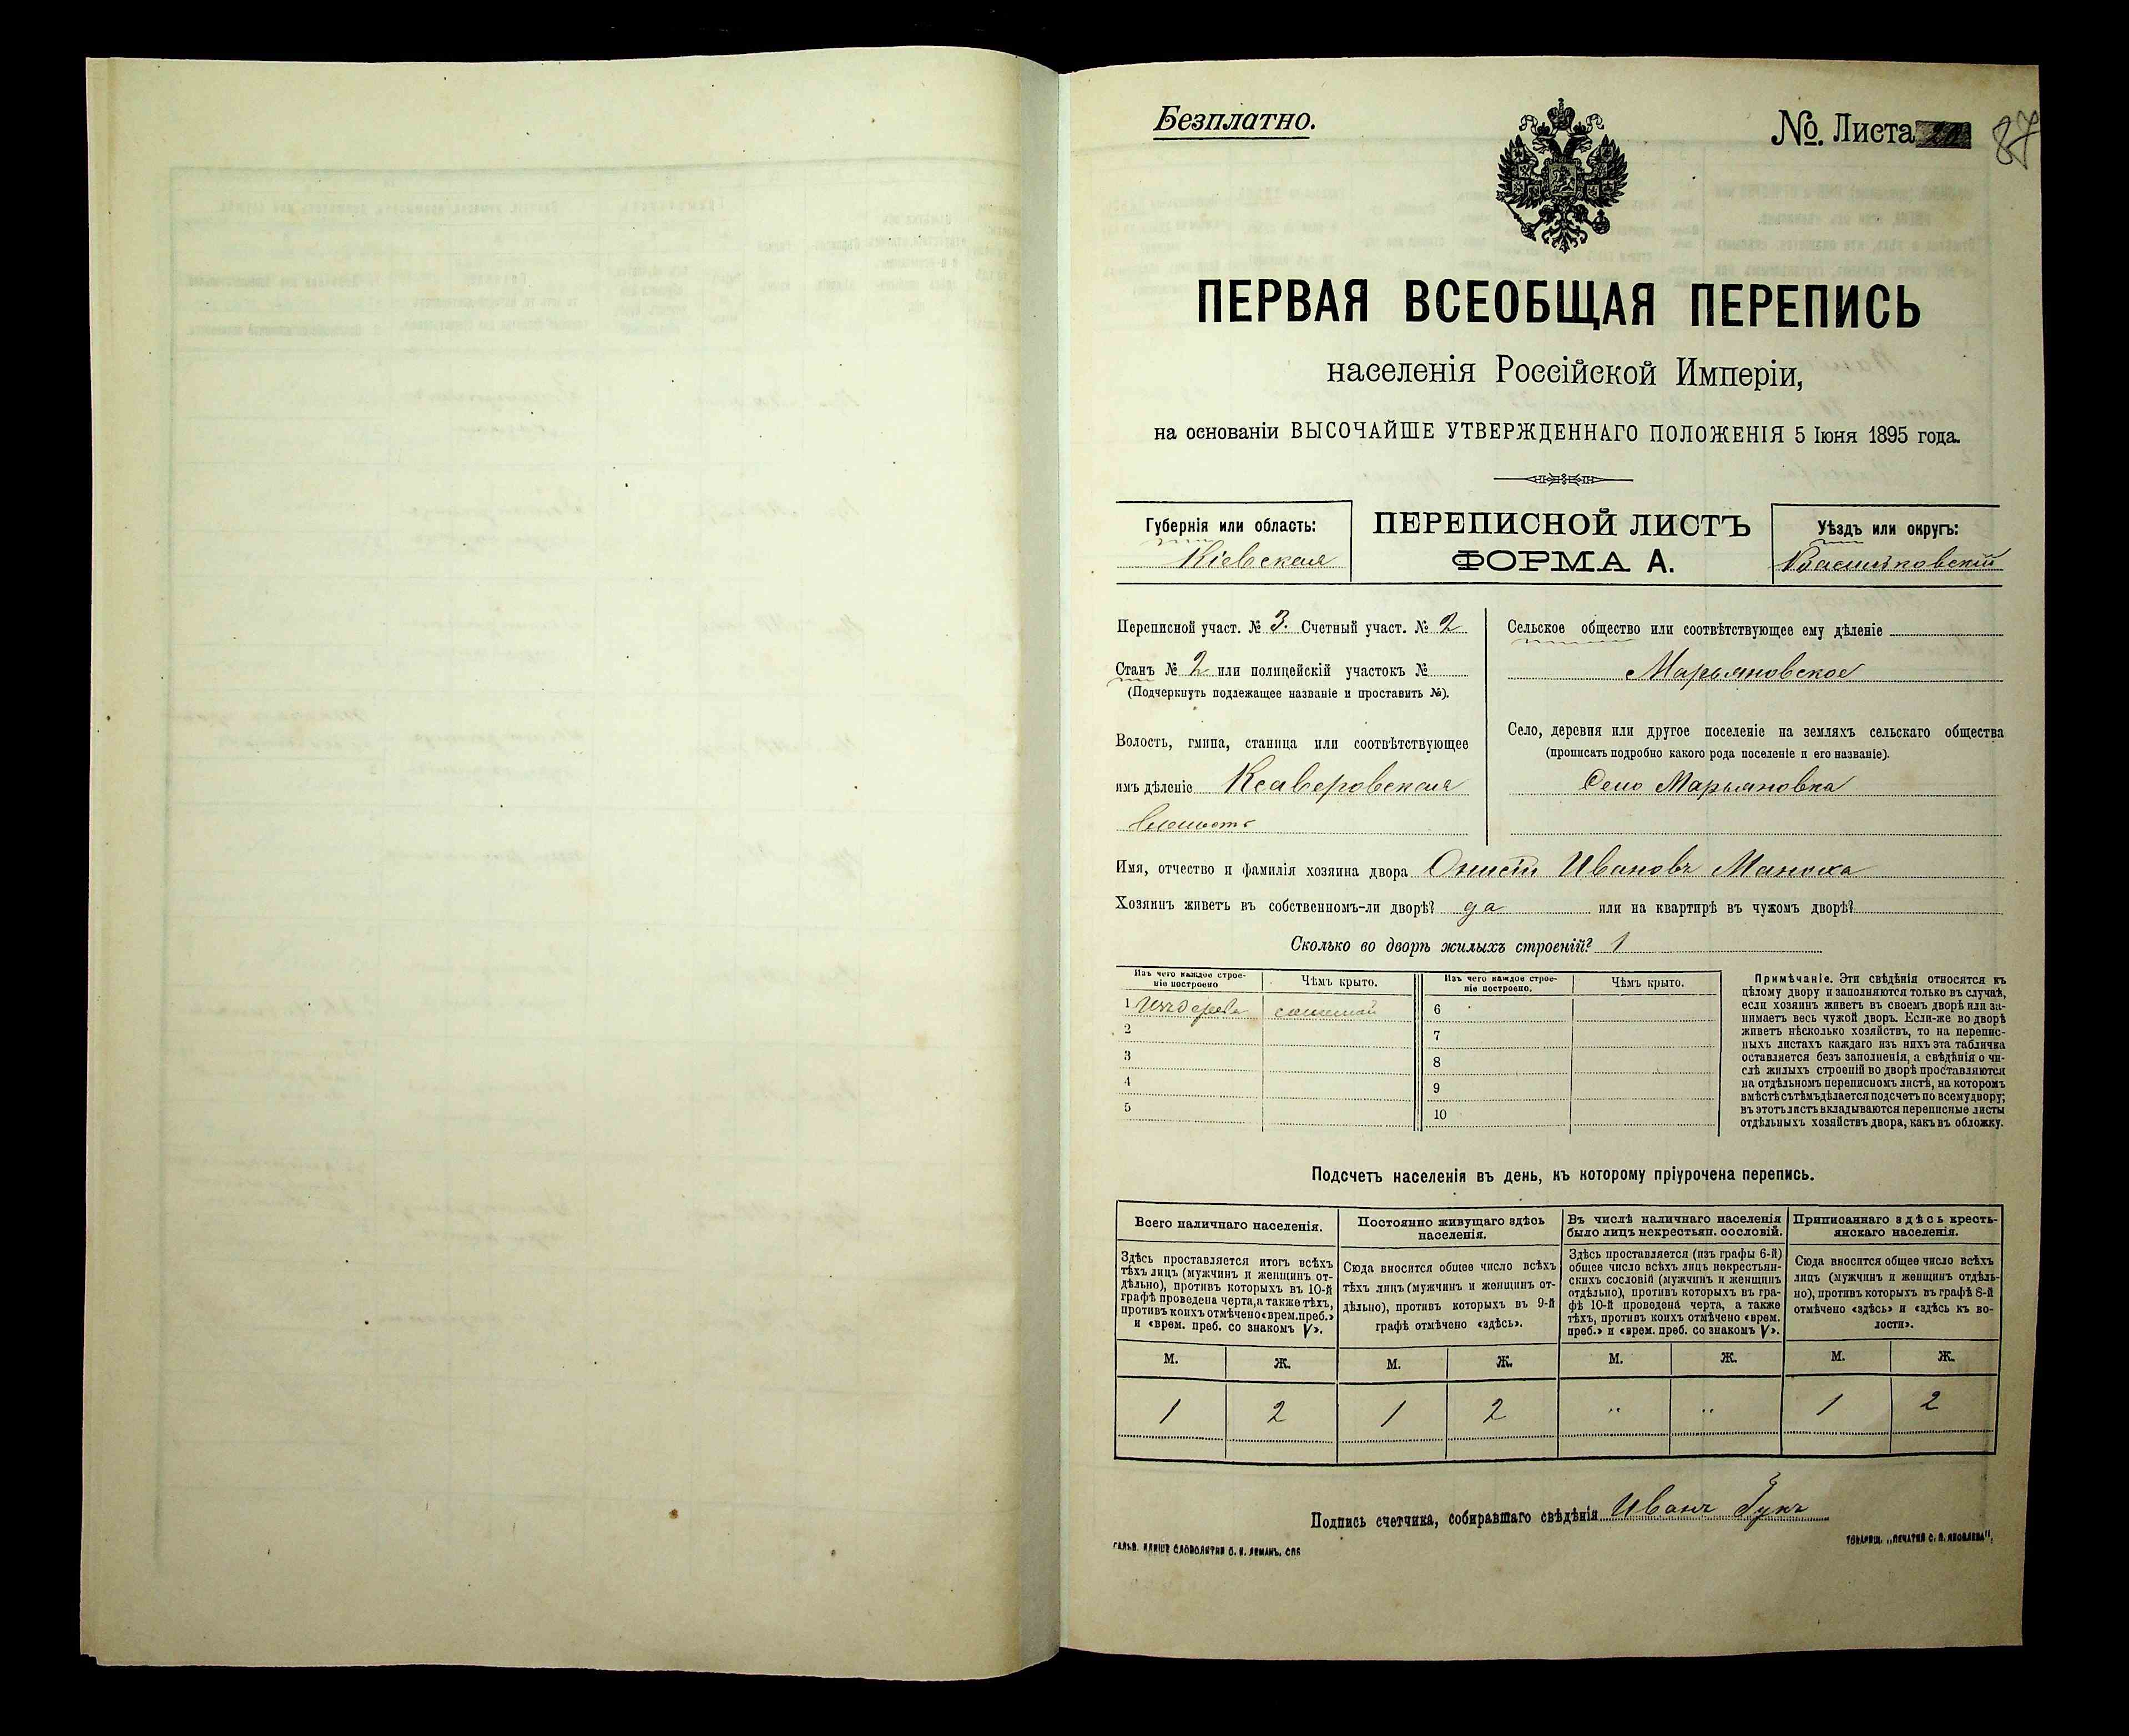 Безплатно.
№. Листа 87
ПЕРВАЯ ВСЕОБЩАЯ ПЕРЕПИСЬ
населенія Россійской Имперіи,
на основаніи ВЫСОЧАЙШЕ УТВЕРЖДЕННАГО ПОЛОЖЕНІЯ 5 Іюня 1895 года.
Губернія или область:
Кіевская
ПЕРЕПИСНОЙ ЛИСТЪ
ФОРМА А.
Уѣздъ или округъ:
Васильковскій
Переписной участ. № 3. Счетный участ. № 2
Станъ № 2 или полицейскій участокъ №
(Подчеркнуть подлежащее названіе и проставить №).
Волость, гмина, станица или соотвѣтствующее
имъ дѣленіе Ксаверовская
волость
Сельское общество или соотвѣтствующее ему дѣленіе
Марьяновское
Село, деревня или другое поселеніе на земляхъ сельскаго общества
(прописать подробно какого рода поселеніе и его названіе).
Село Марьяновка
Имя, отчество и фамилія хозяина двора Ивановъ
Хозяинъ живетъ въ собственномъ-ли дворѣ? да или на квартирѣ въ чужомъ дворѣ?
Сколько во дворѣ жилыхъ строеній? 1
Изъ чего каждое строе-
ніе построено
Чѣмъ крыто.
Изъ чего каждое строе-
ніе построено.
Чѣмъ крыто.
1 Изъ дерева соломой
2
3
4
5
6
7
8
9
10
Примѣчаніе. Эти свѣдѣнія относятся къ
цѣлому двору и заполняются только въ случаѣ,
если хозяинъ живетъ въ своемъ дворѣ или за-
нимаетъ весь чужой дворъ. Если-же во дворѣ
живетъ нѣсколько хозяйствъ, то на перепис-
ныхъ листахъ каждаго изъ нихъ эта табличка
оставляется безъ заполненія, а свѣдѣнія о чи-
слѣ жилыхъ строеній во дворѣ проставляются
на отдѣльномъ переписномъ листѣ, на которомъ
вмѣстѣ съ тѣмъ дѣлается подсчетъ по всему двору;
въ этотъ листъ вкладываются переписные листы
отдѣльныхъ хозяйствъ двора, какъ въ обложку.
Подсчетъ населенія въ день, къ которому пріурочена перепись.
Всего наличнаго населенія.
Здѣсь проставляется итогъ всѣхъ
тѣхъ лицъ (мужчинъ и женщинъ от-
дѣльно), противъ которыхъ въ 10-й
графѣ проведена черта, а также тѣхъ,
противъ коихъ отмѣчено «врем. преб.»
и «врем. преб. со знакомъ V».
Постоянно живущаго здѣсь
населенія.
Сюда вносится общее число всѣхъ
тѣхъ лицъ (мужчинъ и женщинъ от-
дѣльно), противъ которыхъ въ 9-й
графѣ отмѣчено «здѣсь».
Въ числѣ наличнаго населенія
было лицъ некрестьян. сословій.
Здѣсь проставляется (изъ графы 6-й)
общее число всѣхъ лицъ некрестьян-
скихъ сословій (мужчинъ и женщинъ
отдѣльно), противъ которыхъ въ гра-
фѣ 10-й проведена черта, а также
тѣхъ, противъ коихъ отмѣчено «врем.
преб.» и «врем. преб. со знакомъ V».
Приписаннаго здѣсь кресть-
янскаго населенія.
Сюда вносится общее число всѣхъ
лицъ (мужчинъ и женщинъ отдѣль-
но), противъ которыхъ въ графѣ 8-й
отмѣчено «здѣсь» и «здѣсь къ во-
лости».
М. Ж. М. Ж. М. Ж. М. Ж.
1 2 1 2 " " 1 2
Подпись счетчика, собиравшаго свѣдѣнія Иванъ
ГАЛЬВ. КЛИШЕ СЛОВОЛИТНИ О. И. ЛЕМАНЪ, СПБ
ТОВАРИЩ. „ПЕЧАТНЯ С. П. ЯКОВЛЕВА",